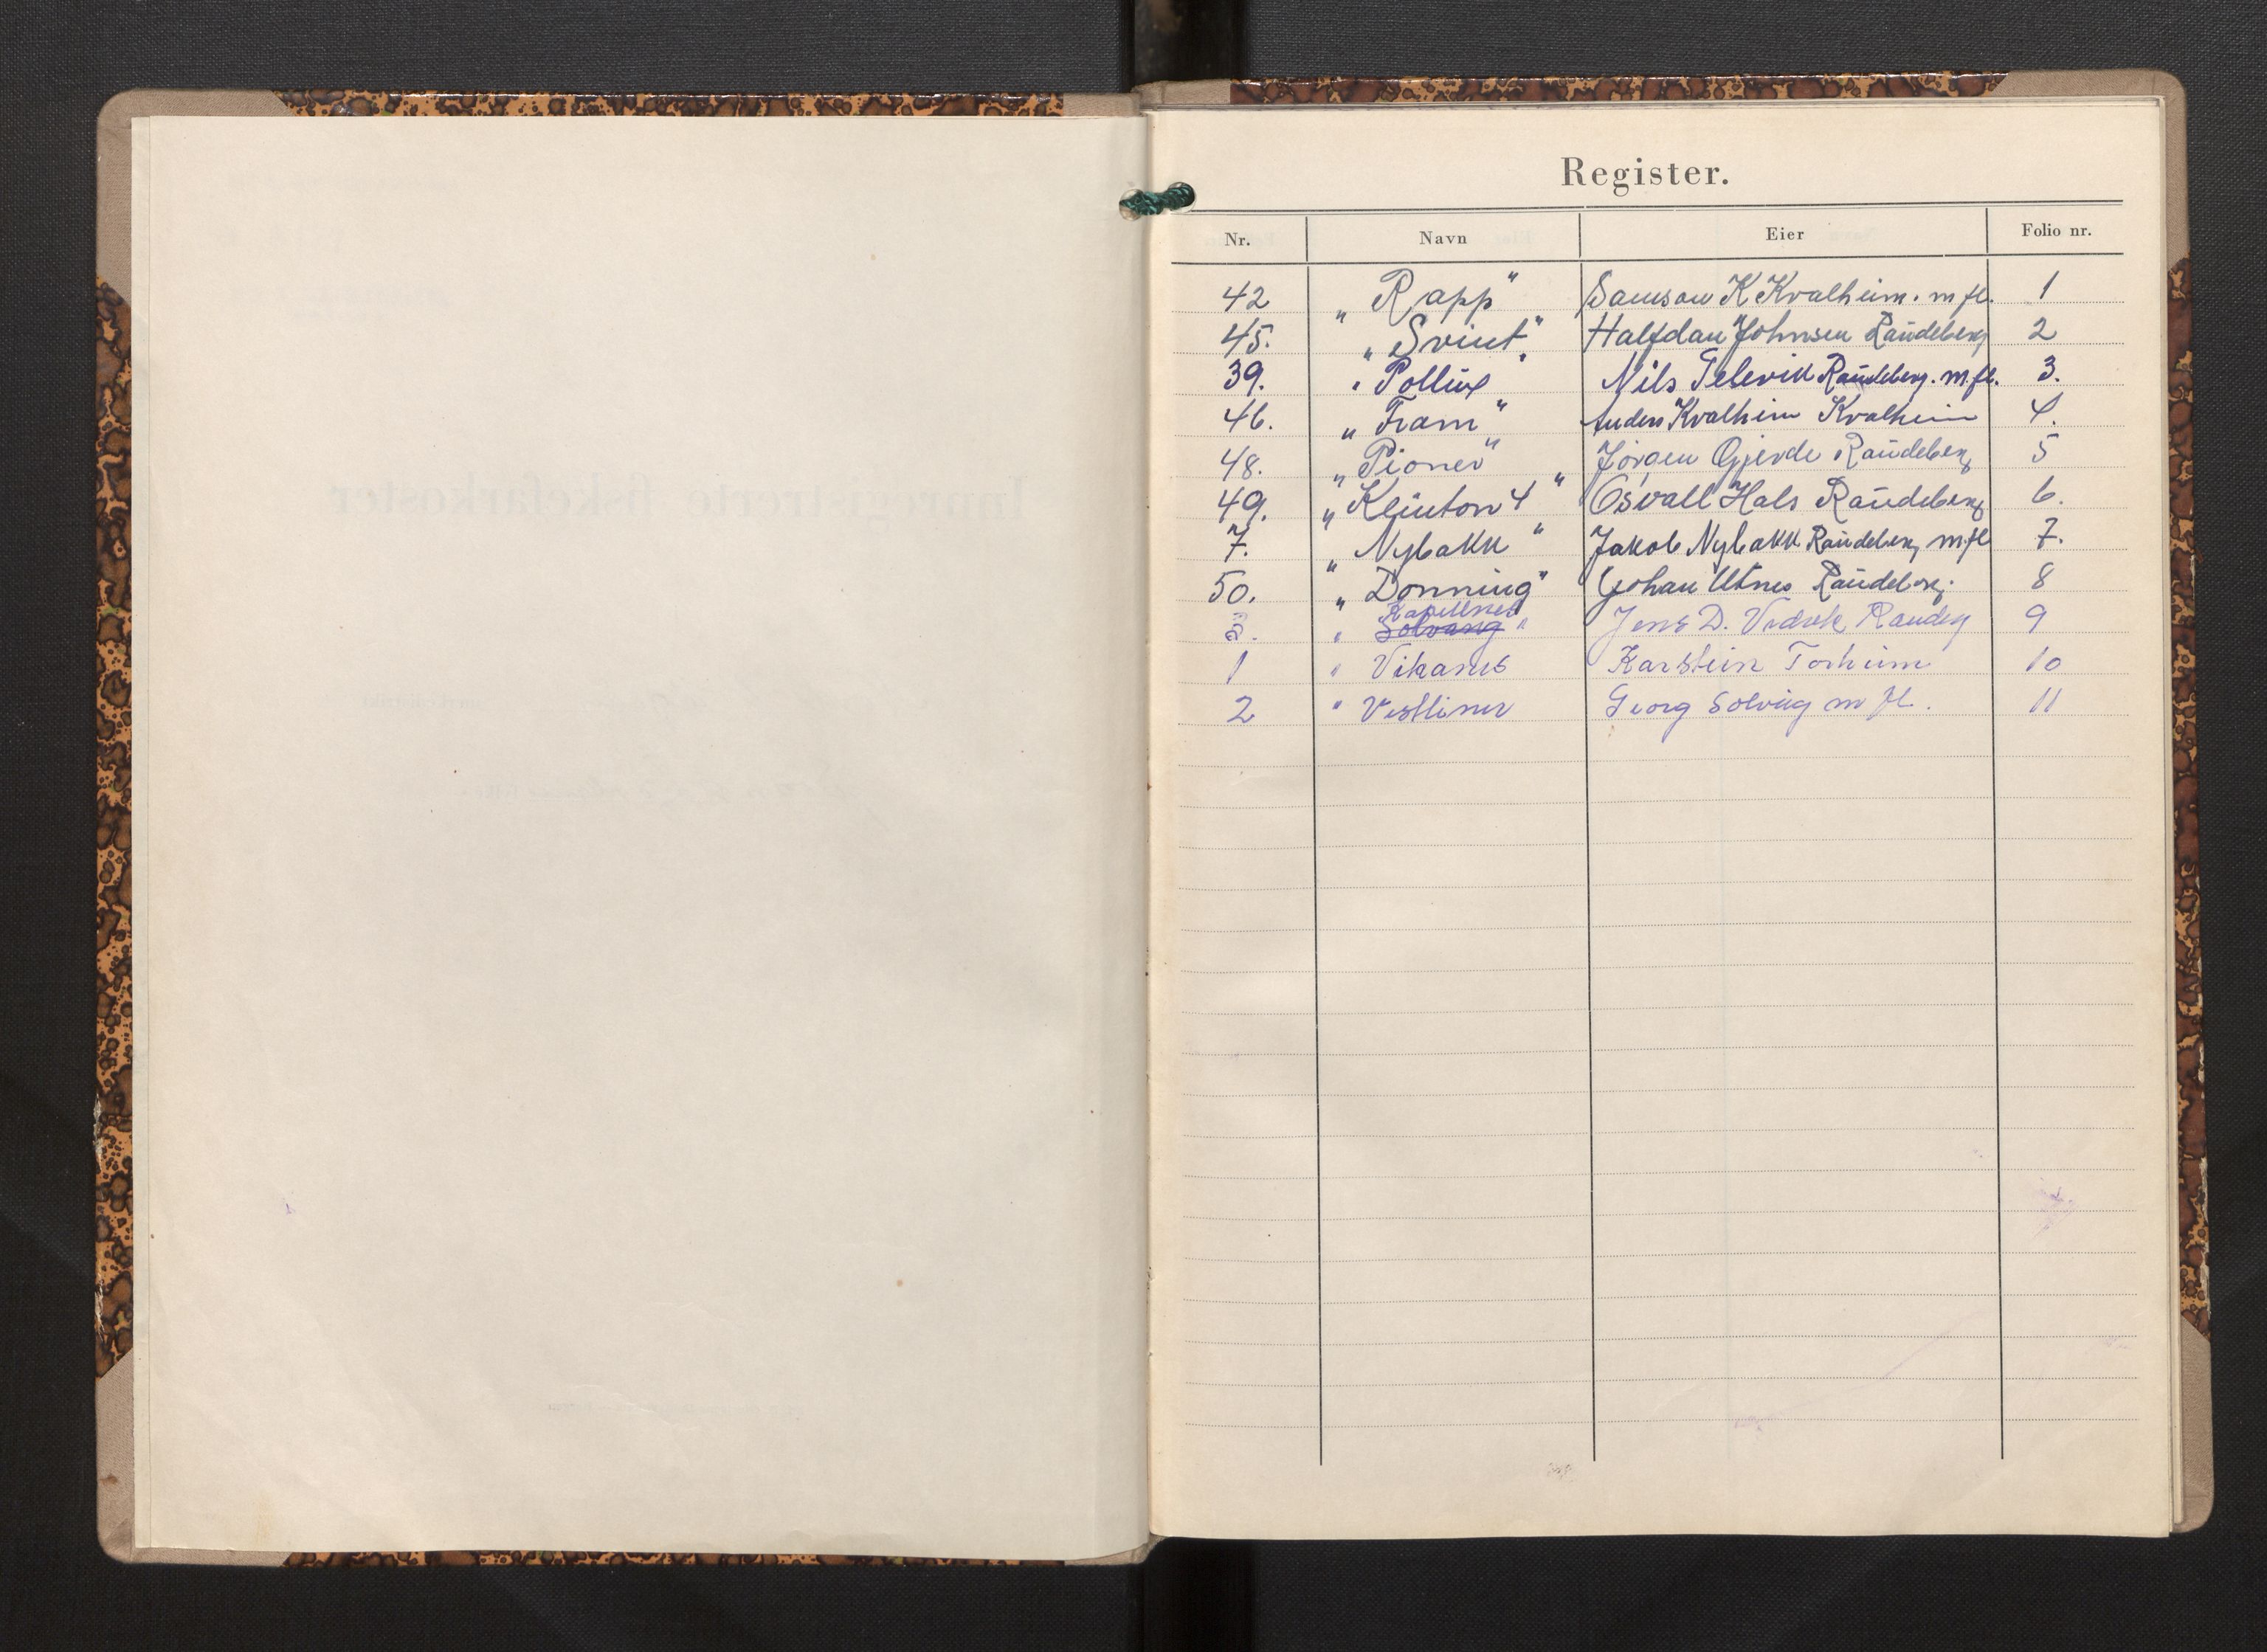 Register.
Nr. Navn Eier Folio nr.
42 „Rapp" Samson K Kvalheim. m fl. 1
45. „Svint" Halfdan Johnsen Raudeberg 2
39. „Pollux" Nils Televik Raudeberg. m.fl. 3.
46. „Fram" Anders Kvalheim Kvalheim 4.
48. „Pioner" Jörgen Gjerde Raudeberg 5
49. „Kvinton 4" Osvall Hals Raudeberg 6.
7. „Nybakk" Jakob Nybakk Raudeberg m.fl 7.
50. „Donning" Johan Utnes Raudeberg. 8
Kapellnes
"Solvang" Jens D. Raudeg 9
1 " Vikanes Karstein Torheim 10
2 " Vestliner Georg Solveig m fl. 11
Innregistrerte fiskefarkoster